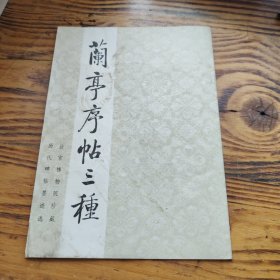 蘭亭序帖三種
故宮博物院珍藏
歷代碑帖墨迹選